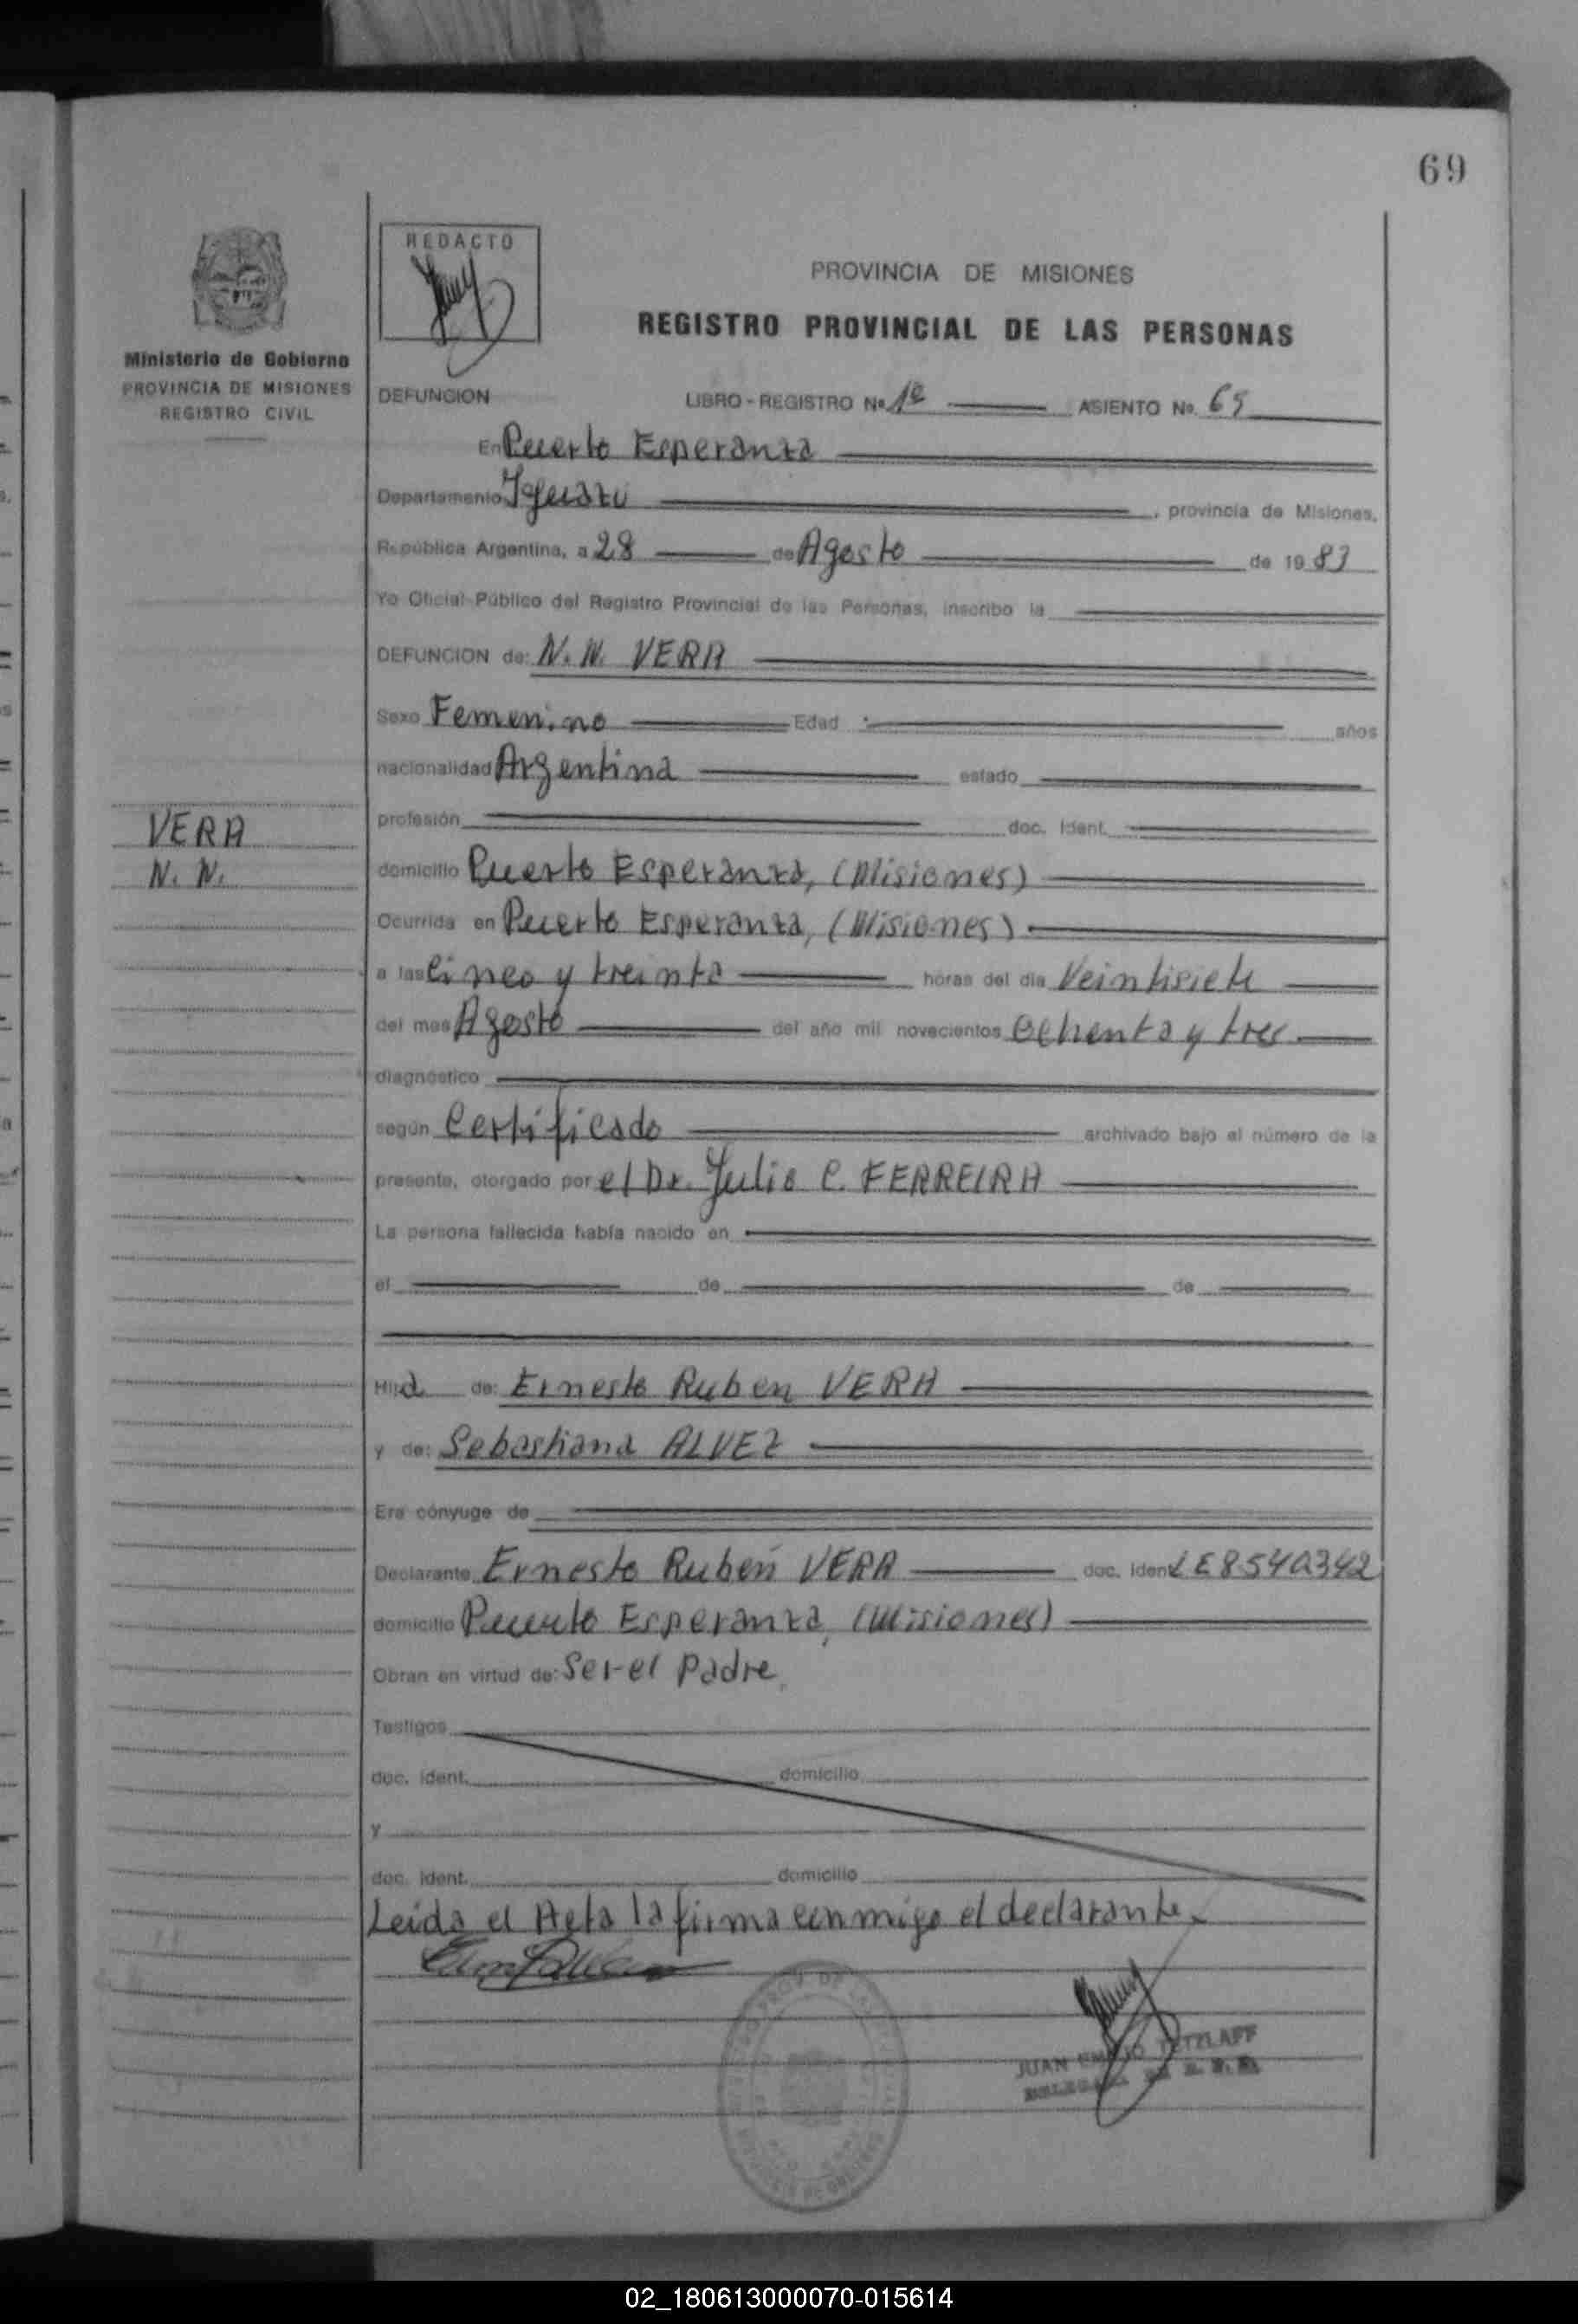 69
REDACTO
PROVINCIA DE MISIONES
REGISTRO PROVINCIAL DE LAS PERSONAS
Ministerio de Gobierno
PROVINCIA DE MISIONES
REGISTRO CIVIL
DEFUNCION LIBRO - REGISTRO No. 1º ASIENTO No. 69
En Puerto Esperanza
Departamento Iguazu , provincia de Misiones,
República Argentina, a 28 de Agosto de 19 83
Yo Oficial Público del Registro Provincial de las Personas, inscribo la
DEFUNCION de: N. N. VERA
Sexo Femenino Edad años
nacionalidad Argentina estado
profesión doc. Ident.
VERA
N. N.
domicilio Puerto Esperanza, (Misiones)
Ocurrida en Puerto Esperanza, (Misiones)
a las cinco y treinta horas del día Veintisiete
del mes Agosto del año mil novecientos Ochenta y tres
diagnóstico
según Certificado archivado bajo el número de la
presente, otorgado por el Dr. Julio C. FERREIRA
La persona fallecida había nacido en
el de de
Hija de: Ernesto Ruben VERA
y de: Sebastiana ALVEZ
Era cónyuge de
Declarante Ernesto Rubén VERA doc. Ident LE8540342
domicilio Puerto Esperanza, (Misiones)
Obran en virtud de: Ser el Padre
Testigos
doc. Ident. domicilio
y
doc. Ident. domicilio
Leida el Acta la firma conmigo el declarante.
JUAN EMILIO TETZLAFF
02_180613000070-015614